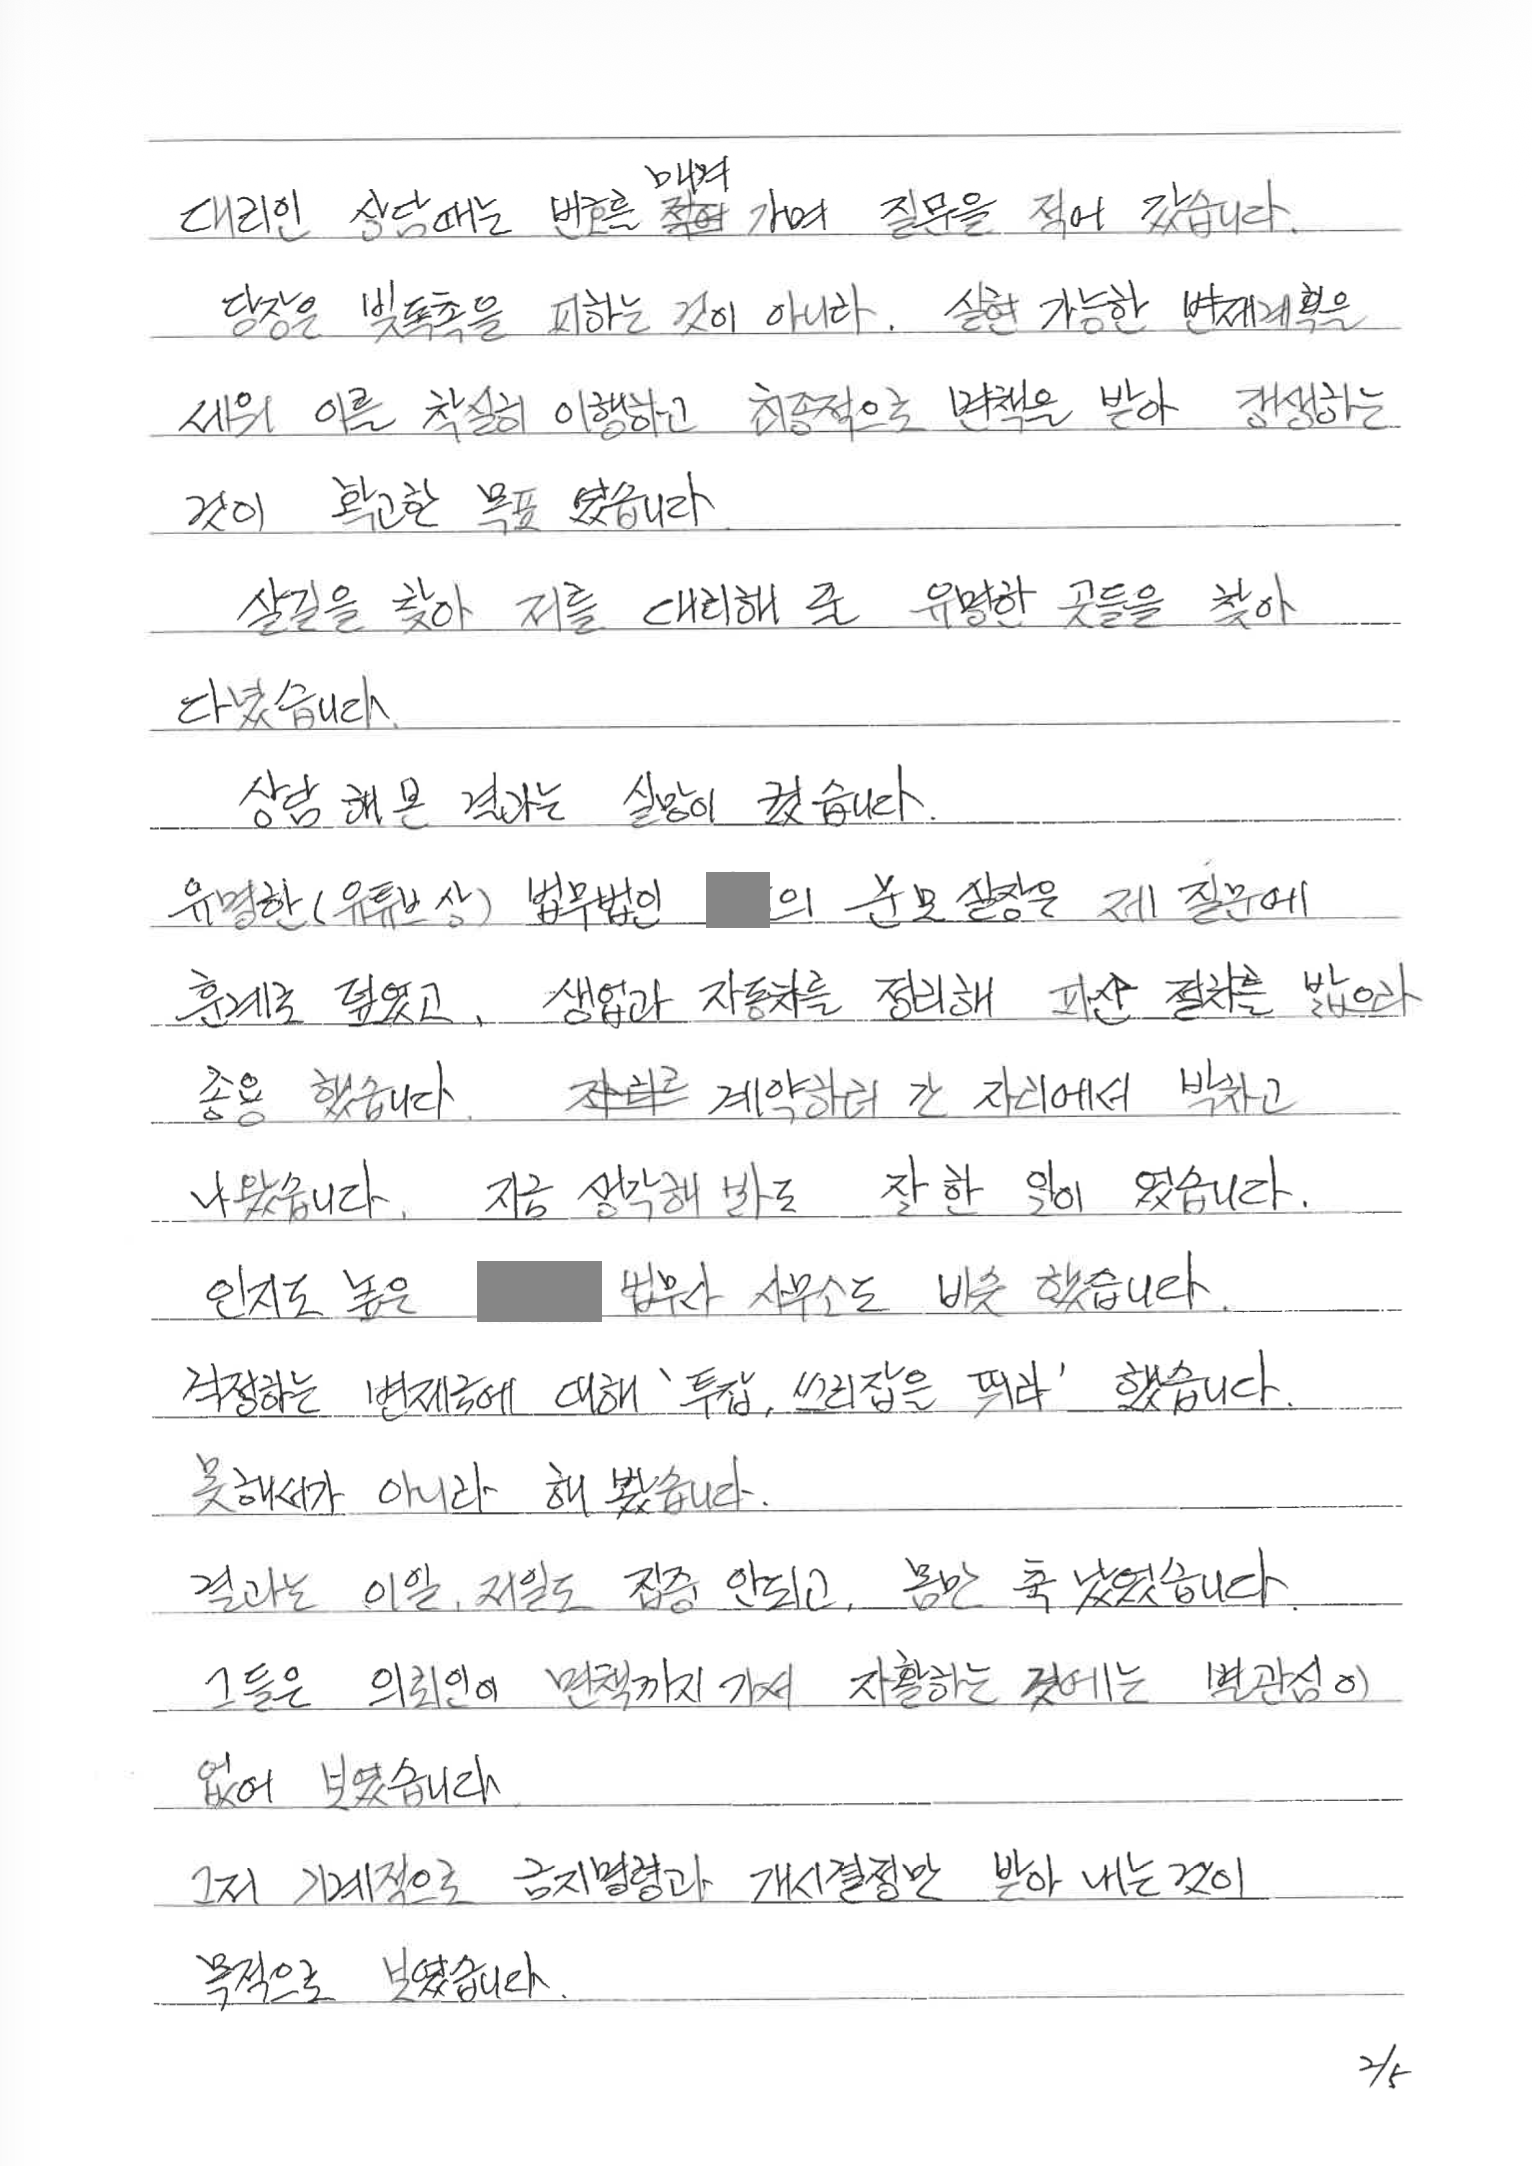 대리인 상담때는 번호를 매겨 가며 질문을 적어 갔습니다.
당장은 빚독촉을 피하는 것이 아니라. 실현 가능한 변제계획을
세워 이를 착실히 이행하고 최종적으로 면책을 받아 갱생하는
것이 확고한 목표 였습니다.
살길을 찾아 저를 대리해 줄 유명한 곳들을 찾아
다녔습니다.
상담 해 본 결과는 실망이 컸습니다.
유명한(유튜브 상) 법무법인 의 분모 실장은 제 질문에
훈계로 덮였고, 생업과 자동차를 정리해 파산 절차를 밟으라
종용 했습니다. 자리를 계약하러 간 자리에서 박차고
나왔습니다. 지금 생각해 봐도 잘 한 일이 였습니다.
인지도 높은 법무사 사무소도 비슷 했습니다.
걱정하는 변제금에 대해 '투잡, 쓰리잡을 뛰라' 했습니다.
못해서가 아니라 해 봤습니다.
결과는 이일, 저일도 집중 안되고, 몸만 축 났었습니다.
그들은 의뢰인이 면책까지 가서 자활하는 것에는 별관심이
없어 보였습니다.
그저 기계적으로 금지명령과 개시결정만 받아 내는 것이
목적으로 보였습니다.
2/5